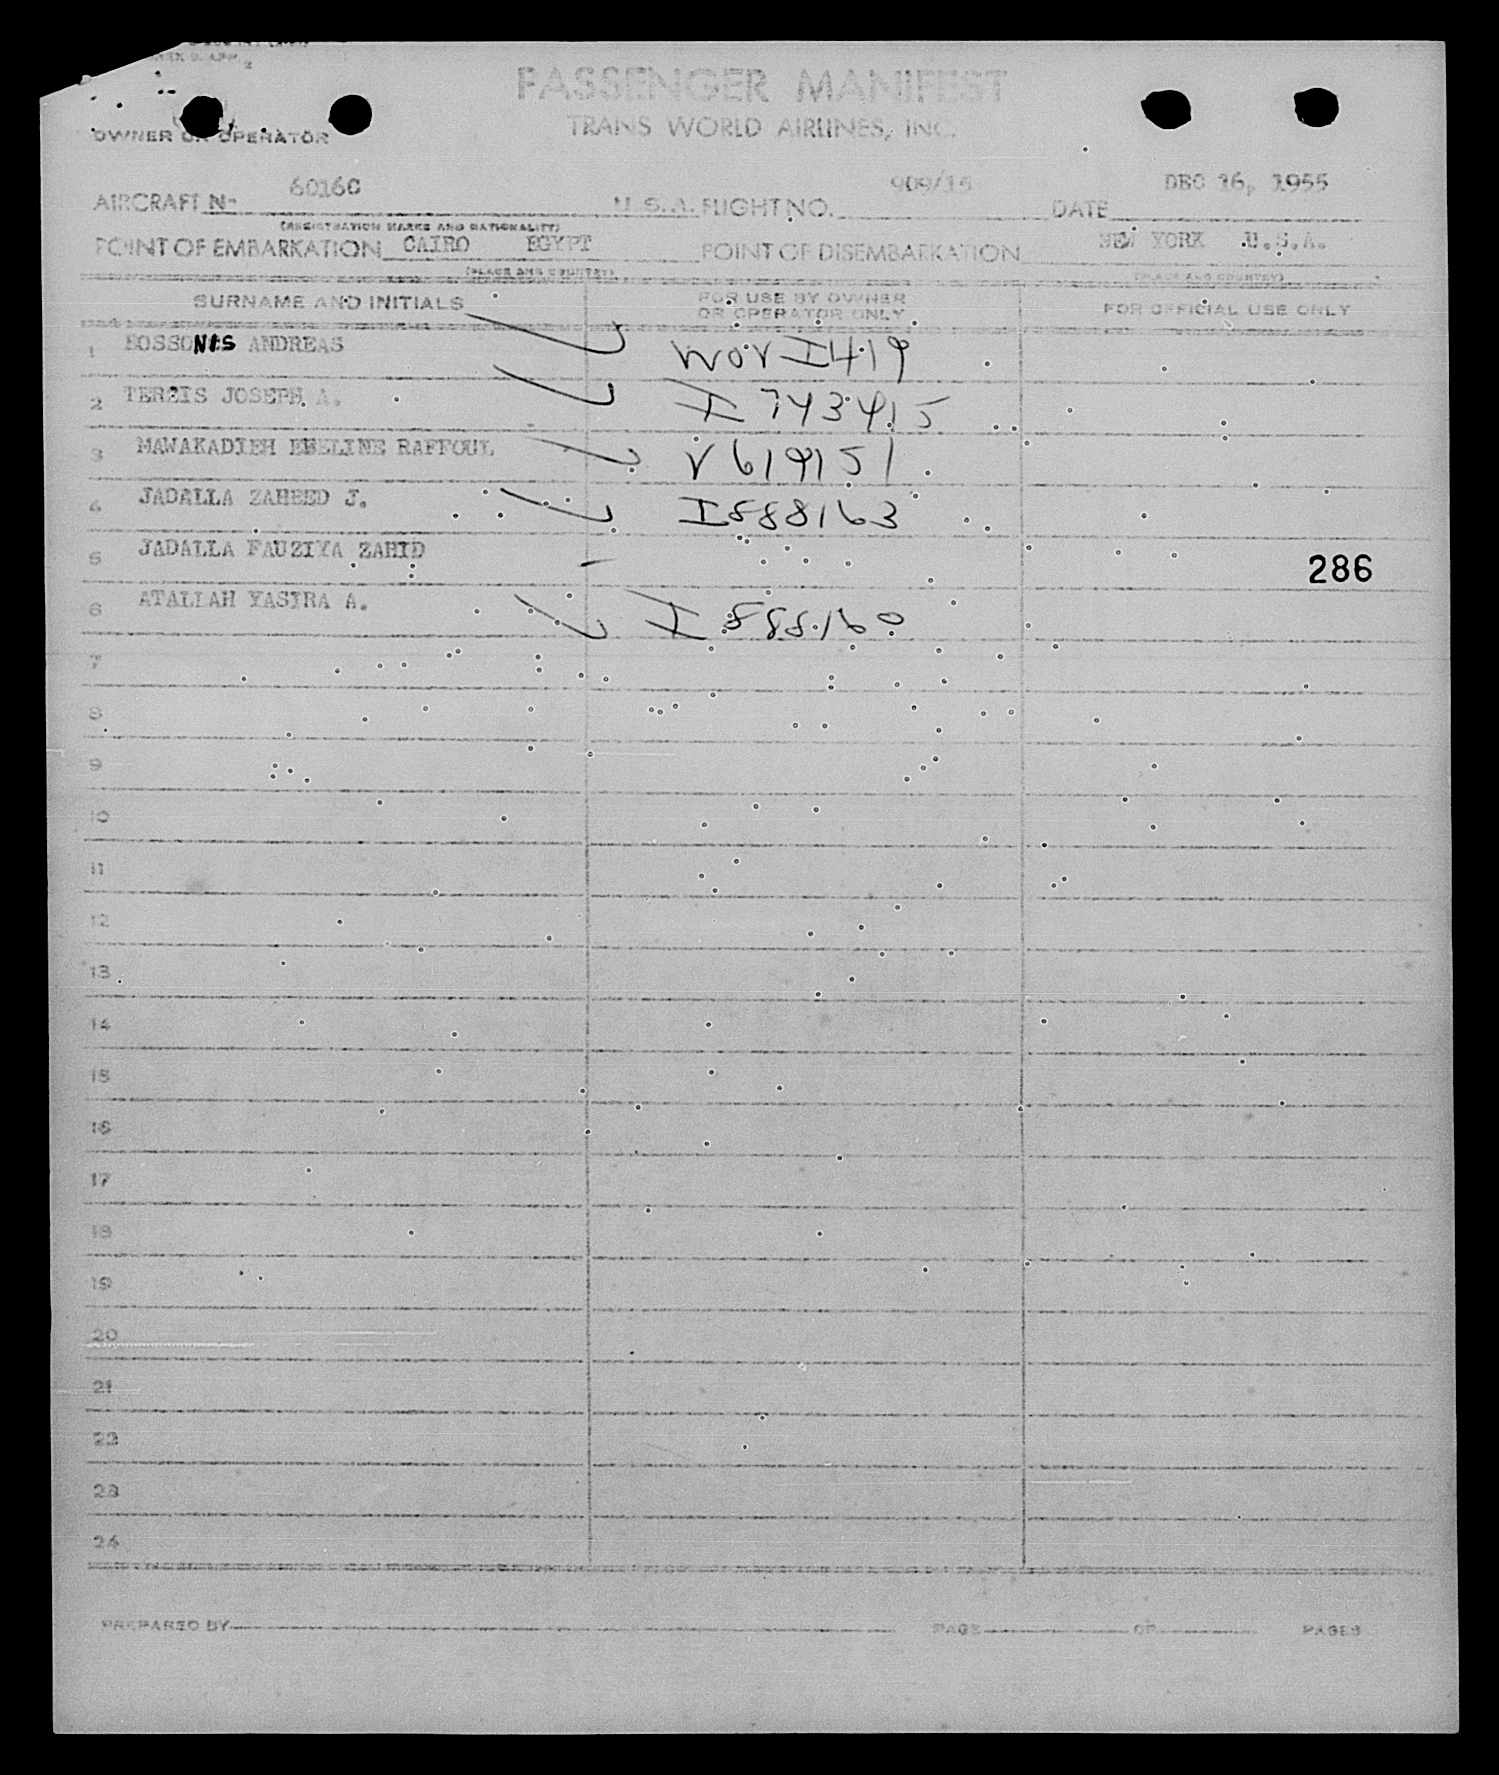 PASSENGER MANIFEST
TRANS WORLD AIRLINES, INC.
OWNER OR OPERATOR
AIRCRAFT No 6016C U.S.A. FLIGHT NO. 909/15 DATE DEC 16, 1955
(REGISTRATION MARKS AND NATIONALITY)
POINT OF EMBARKATION CAIRO EGYPT POINT OF DISEMBARKATION NEW YORK U.S.A.
(PLACE AND COUNTRY) (PLACE AND COUNTRY)
SURNAME AND INITIALS FOR USE BY OWNER OR OPERATOR ONLY FOR OFFICIAL USE ONLY
1 ANDREAS
2 TERZIS JOSEPH A. I 743415
3 MAWAKADIEH EVELINE RAFFOUL V 619151
4 JADALLA ZAHEED J. I888163
5 JADALLA FAUZIYA ZAHID 286
6 ATALLAH YASIRA A. I 888160
7
8
9
10
11
12
13
14
15
16
17
18
19
20
21
22
23
24
PREPARED BY PAGE OF PAGES